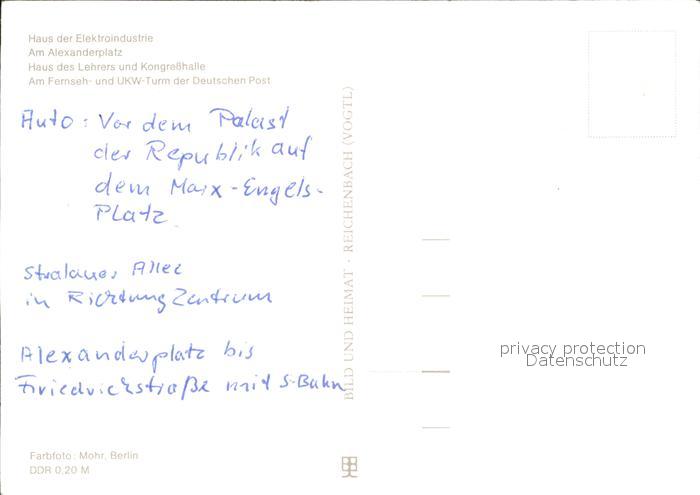 Haus der Elektroindustrie
Am Alexanderplatz
Haus des Lehrers und Kongreßhalle
Am Fernseh- und UKW-Turm der Deutschen Post
Auto: Vor dem Palast
der Republik auf
dem Marx-Engels-
Platz
Stralauer Allee
in Richtung Zentrum
Alexanderplatz bis
Friedrichstraße mit S-Bahn
Farbfoto: Mohr, Berlin
DDR 0,20 M
BILD UND HEIMAT · REICHENBACH (VOGTL)
privacy protection
Datenschutz